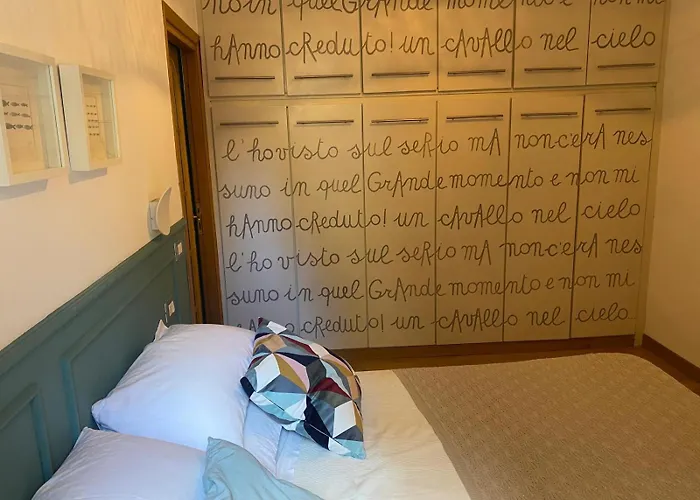 noin quel GrANde momento e non mi
hAnno cReduto! un cAvAllo nel cielo
l'ho visto sul seRio mA non c'erA nes
suno in quel GrANde momento e non mi
hAnno cReduto! un cAvAllo nel cielo
l'ho visto sul seRio mA non c'erA nes
suno in quel GrANde momento e non mi
hAnno cReduto! un cAvAllo nel cielo